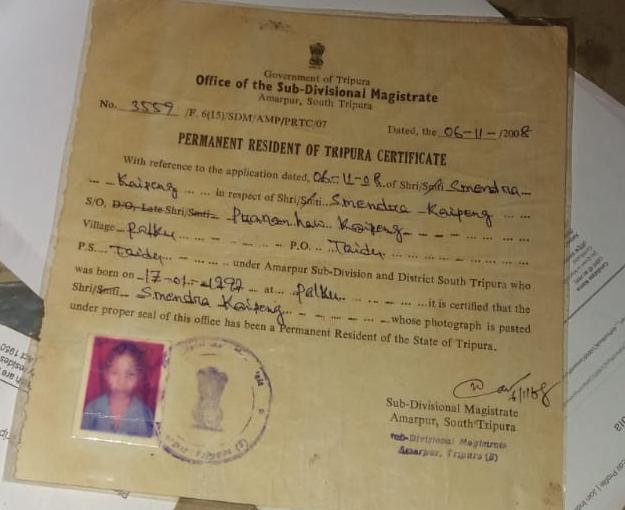 Government of Tripura
Office of the Sub-Divisional Magistrate
Amarpur, South Tripura
No. 3559 /F. 6(15)/SDM/AMP/PRTC/07
Dated, the 06-11-/2008
PERMANENT RESIDENT OF TRIPURA CERTIFICATE
With reference to the application dated, 06-11-08 of Shri/Smti Smendra
Kaipeng ... ... in respect of Shri/Smti.. Smendra Kaipeng ... ...
S/O, D.O, Late Shri/Smti- Kaipeng
Village - Palku ... P.O. .. Taidu
P.S... Taidu ... under Amarpur Sub-Division and District South Tripura who
was born on -17-01- at Palku ... it is certified that the
Shri/Smti- Smendra Kaipeng whose photograph is pasted
under proper seal of this office has been a Permanent Resident of the State of Tripura.
Sub-Divisional Magistrate
Amarpur, South Tripura
Sub-Divisional Magistrate
Amarpur, Tripura (S)